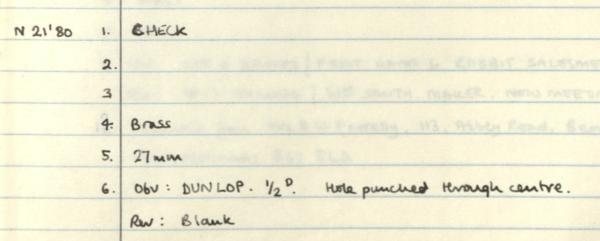 N 21'80 1. CHECK
2.
3
4. Brass
5. 27mm
6. Obv: DUNLOP. 1/2D. Hole punched through centre.
Rev: Blank